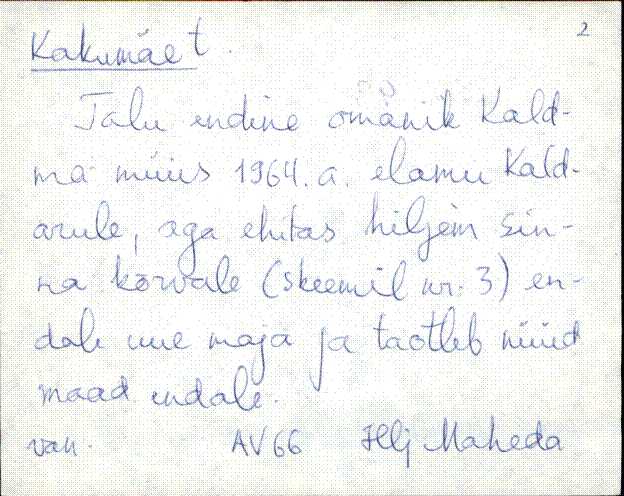 2
Kakumäe t.
Talu endine omanik Kald-
ma müüs 1964. a. elamu Kald-
arule, aga ehitas hiljem sin-
na kõrvale (skeemil nr. 3) en-
dale uue maja ja taotleb nüüd
maad endale.
van. AV 66 Helj Maheda